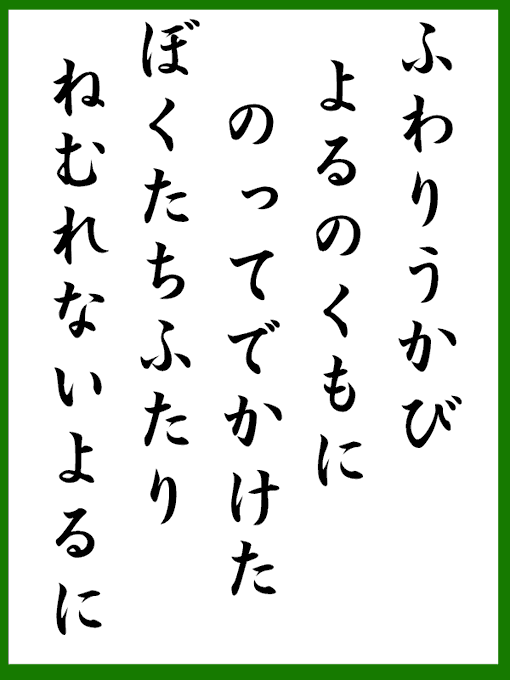 ふわりうかび
よるのくもに
のってでかけた
ぼくたちふたり
ねむれないよるに